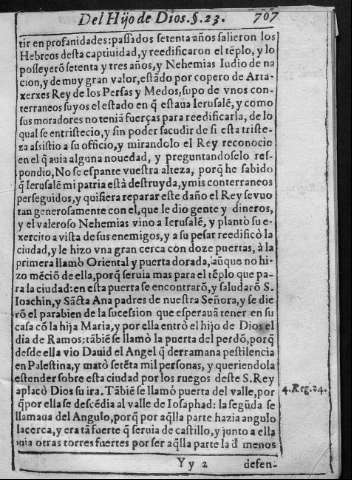 Del Hijo de Dios. §. 23. 707
tir en profanidades: passados setenta años salieron los
Hebreos desta captiuidad, y reedificaron el tẽplo, y lo
posseyerõ setenta y tres años, y Nehemias Iudio de na
cion, y de muy gran valor, estãdo por copero de Arta-
xerxes Rey de los Persas y Medos, supo de vnos con-
terraneos suyos el estado en q̃ estaua Ierusalẽ, y como
sus moradores no teniã fuerças para reedificarla, de lo
qual se entristecio, y sin poder sacudir de si esta triste-
za assistio a su officio, y mirandolo el Rey reconocio
en el q̃ auia alguna nouedad, y preguntandoselo res-
pondio, No se espante vuestra alteza, porq̃ he sabido
q̃ Ierusalẽ mi patria està destruyda, y mis conterraneos
perseguidos, y quisiera reparar este daño el Rey se vuo
tan generosamente con el, que le dio gente y dineros,
y el valeroso Nehemias vino a Ierusalẽ, y plantò su e-
xercito a vista de sus enemigos, y a su pesar reedificò la
ciudad, y le hizo vna gran cerca con doze puertas, à la
primera llamò Oriental y puerta dorada, aũque no hi-
zo mẽciõ de ella, porq̃ seruia mas para el tẽplo que pa-
ra la ciudad: en esta puerta se encontrarõ, y saludarõ S.
Ioachin, y Sãcta Ana padres de nuestra Señora, y se die
rõ el parabien de la sucession que esperauã tener en su
casa cõ la hija Maria, y por ella entrò el hijo de Dios el
dia de Ramos; tãbiẽ se llamò la puerta del perdõ, porq̃
desde ella vio Dauid el Angel q̃ derramana pestilencia
en Palestina, y matò setẽta mil personas, y queriendola
estender sobre esta ciudad por los ruegos deste S. Rey
aplacò Dios su ira. Tãbiẽ se llamò puerta del valle, por
q̃ por ella se descẽdia al valle de Iosaphad: la segũda se
llamaua del Angulo, porq̃ por aq̃lla parte hazia angulo
la cerca, y era tã fuerte q̃ seruia de castillo, y junto a ella
auia otras torres fuertes por ser aq̃lla parte la d̃ menos
4. Reg. 24.
Y y 2 defen-